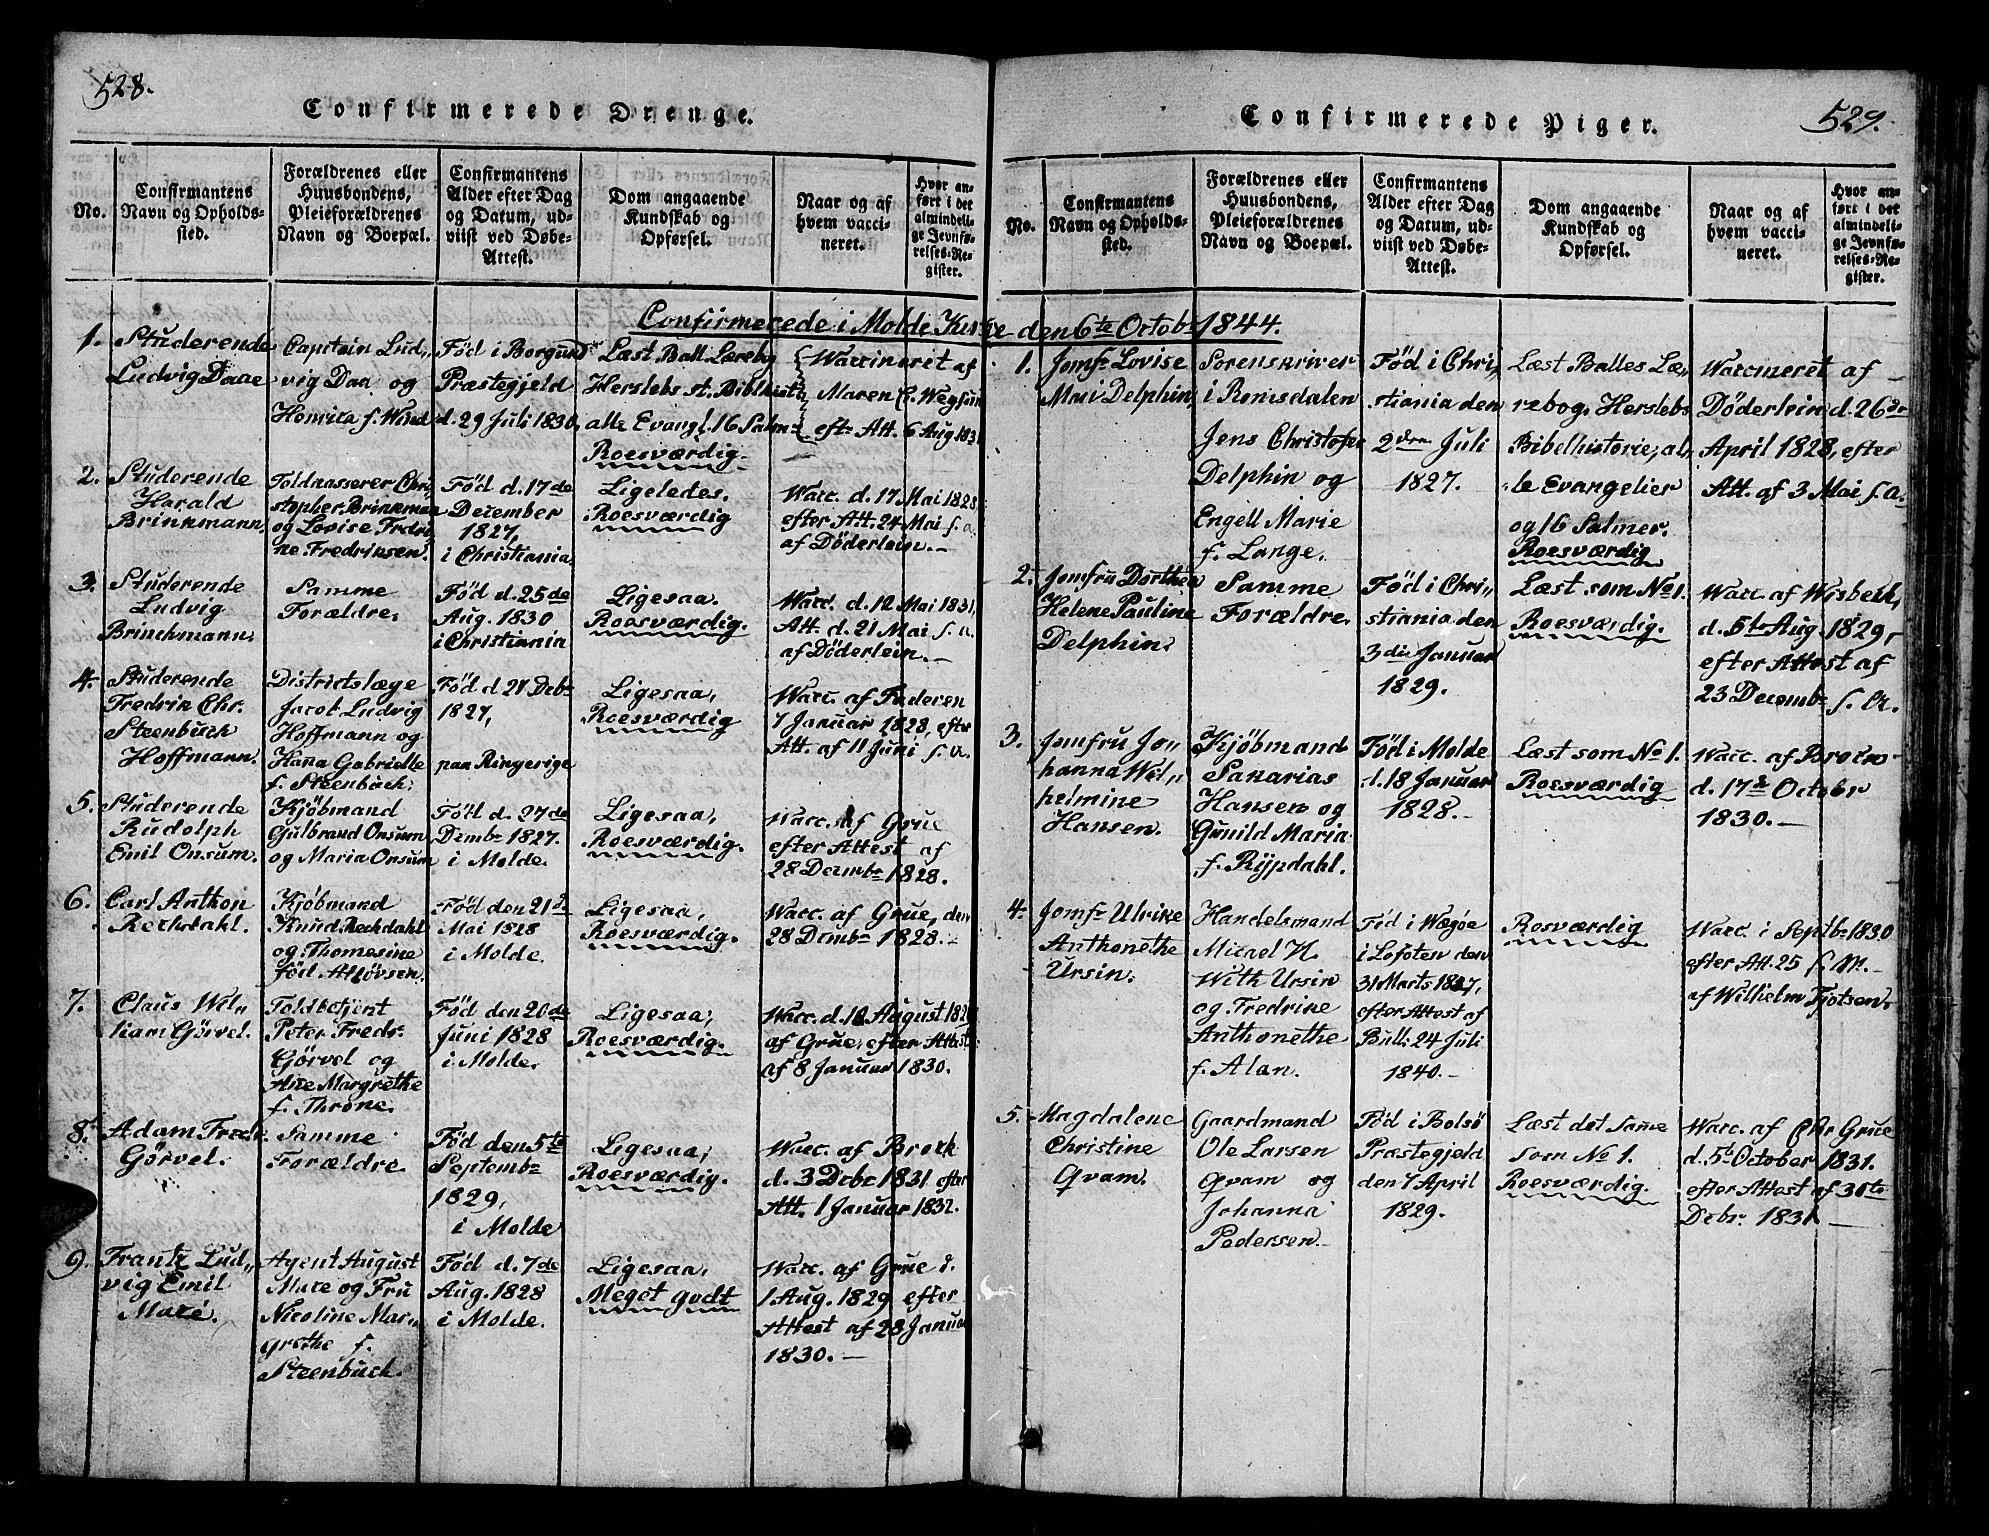 528.
Confirmerede Drenge.
No.
Confirmantens
Navn og Opholds-
sted.
Forældrenes eller
Huusbondens,
Pleieforældrenes
Navn og Boepæl.
Confirmantens
Alder efter Dag
og Datum, ud-
viist ved Døbe-
Attest.
Dom angaaende
Kundskab og
Opførsel.
Naar og af
hvem vacci-
neret.
Hvor an-
ført i det
almindeli-
ge Jevnfø-
relses-Re-
gister.
Confirmerede i Molde Kirke den 6te Octobr 1844.
1.
Studerende
Ludvig Daae
Captein Lud„
vig Daa og
Henrica f. Wind
Fød i Borgund
Præstegjeld
d. 29 Juli 1830,
Læst Ball. Lærebg
Herslebs st. Biblhist
alle Evangl. 16 Salm
Roesværdig.
Waccineret af
Maren C. Wegsund
eftr Att. 6 Aug 1831
2.
Studerende
Harald
Brinkmann,
Toldkasserer Chri„
stopher Brinkman
og Lovise Fredri
ke Fredriksen.
Fød d. 17de
December
1827,
i Christiania
Ligeledes.
Roesværdig
Wacc. d. 17 Mai 1828
efter Att. 24 Mai s. a.
af Döderlein.—
3.
Studerende
Ludvig
Brinchmann,
Samme
Forældre,
Fød d. 25de
Aug. 1830
i Christiania
Ligesaa.
Roesværdig.
Wacc. d. 12 Mai 1831.
Att. d. 21 Mai s. a.
af Döderlein.—
4.
Studerende
Fredrik Chr.
Steenbuch
Hoffmann.
Districtslæge
Jacob Ludvig
Hoffmann og
Hana Gabrielle
f. Steenbuch.
Fød d 27 Debr
1827,
paa Ringerige
Ligesaa,
Roesværdig
Wacc. af Faderen
7 Januar 1828, efter
Att. af 11 Juni s. A.
5.
Studerende
Rudolph
Emil Onsum.
Kjöbmand
Gulbrand Onsum
og Maria Onsum
Fød d. 27de
Dcmbr 1827.
i Molde.
Ligesaa,
Roesværdig.
Wacc. af Grue
efter Attest af
28 Decmbr 1828.
6.
Carl Anthon
Rechdahl.
Kjöbmand
Knud Rechdahl
og Thomesine
fød
Fød den 21de
Mai 1828
i Molde.
Ligesaa,
Roesværdig.
Wacc. af Grue, den
28 Dcmbr 1828.—
7.
Claus Wil„
liam Görvel.
Toldbetjent
Peter Fredr.
Görvel og
Ane Margrethe
f. Throne.
Fød den 20de
Juni 1828
i Molde.
Ligesaa,
Roesværdig.
Wacc. d. August
af Grue, efter Attest
af 8 Januar 1830.
8.
Adam Fredr.
Görvel.
Samme
Forældre
Fød den 5te
Septembr
1829,
i Molde
Ligesaa,
Roesværdig.
Wacc. af Brock
d. 3 Debr 1831 efter
Att. 1 Januar 1832.
9.
Frantz Lud„
vig Emil
Mace.
Agent August
Mace og Fru
Nicoline Mar„
grethe f.
Steenbuch.
Fød d. 7de
Aug. 1828
i Molde.
Ligesaa,
Meget godt
Wacc. af Grue d.
1 Aug. 1829 efter
Attest af 28 Januar
1830.—
529.
Confirmerede Piger.
No.
Confirmantens
Navn og Opholds-
sted.
Forældrenes eller
Huusbondens,
Pleieforældrenes
Navn og Boepæl.
Confirmantens
Alder efter Dag
og Datum, ud-
viist ved Døbe-
Attest.
Dom angaaende
Kundskab og
Opførsel.
Naar og af
hvem vacci-
neret.
Hvor an-
ført i det
almindeli-
ge Jevnfø-
relses-Re-
gister.
1.
Jomfr Lovise
Mari Delphin,
Sorenskriver
i Romsdalen
Jens Christofer
Delphin og
Engell Marie
f. Lange.
Fød i Chri„
stiania den
2den Juli
1827.
Læst Balles Læ„
rebog, Herslebs
Bibelhistorie, al„
le Evangelier
og 16 Salmer.
Roesværdig
Waccineret af
Döderlein d. 26de
April 1828, efter
Att. af 3 Mai s. a.
2.
Jomfru Dorthea
Helene Pauline
Delphin.
Samme
Forældre.
Fød i Chri„
stiania den
3die Januar
1829.
Læst som No 1.
Roesværdig.
Wacc. af Wisbech,
d. 5te Aug 1829,
efter Attest af
23 Decembr s. A.
3.
Jomfru Jo„
hanna Wil„
helmine
Hansen.
Kjöbmand
Sakarias
Hansen og
Gunild Maria
f. Rypdahl.
Fød i Molde
d. 18 Januar
1828.—
Læst som No 1.
Roesværdig
Wacc. af
d. 17de October
1830.—
4.
Jomfr Ulrike
Anthonethe
Ursin.
Handelsmand
Micael H.
With Ursin
og Fredrike
Anthonethe
f. Alan.
Fød i Wægöe
i Lofoten den
31 Marts 1827,
efter Attest af
Bull: 24 Juli
1840.—
Rosværdig
Wacc. i Septbr 1830
efter Att. 25 s. M.—
af Wilhelm Tjotsen.
5.
Magdalene
Christine
Qvam.
Gaardmand
Ole Larsen
Qvam og
Johanna
Pedersen.—
Fød i Bolsö
Præstegjeld
den 7 April
1829.
Læst det samme
som No 1.
Roesværdig.
Wacc. af Chr Grue
d. 5te October 1831.
efter Attest af 30te
Debr. 1831.—